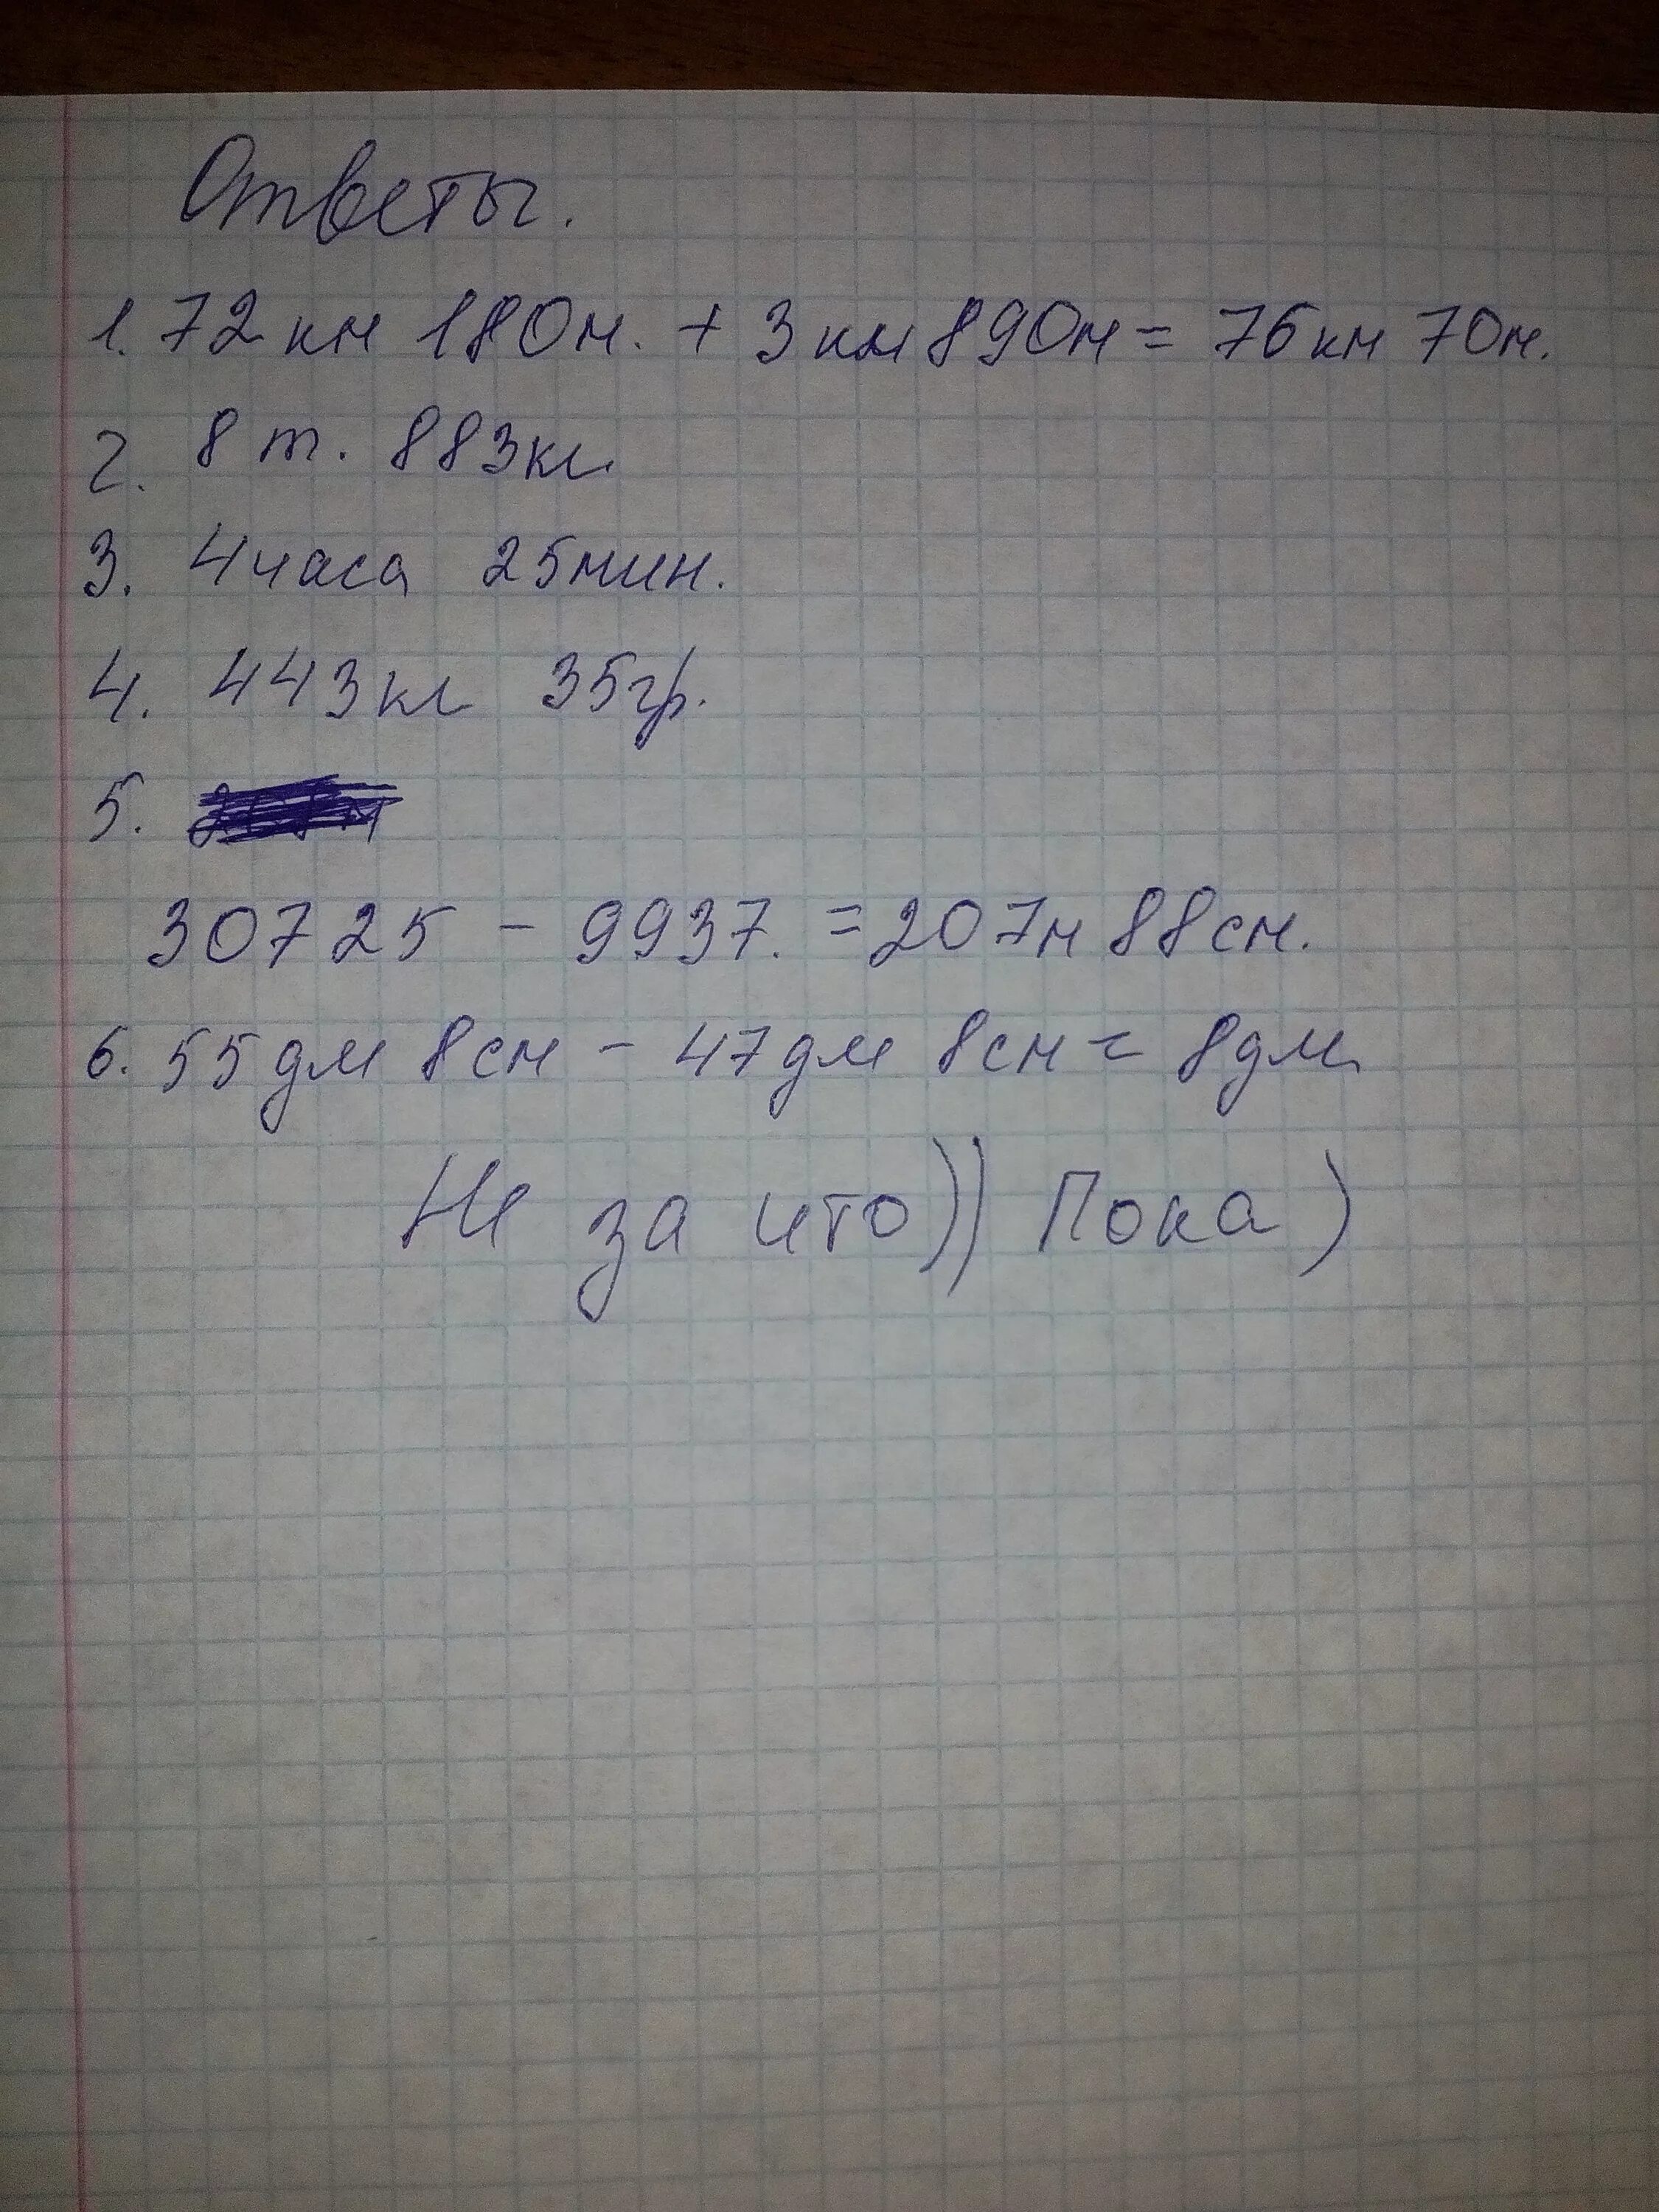 Ответы.
1. 72 км 180м. + 3 км 890м = 76 км 70м.
2. 8 т. 883кг
3. 4 часа 25мин.
4. 443кг 35гр.
5.
30725 - 9937. = 207м 88см.
6. 55 дм 8см - 47дм 8см = 8дм.
Не за что)) Пока)